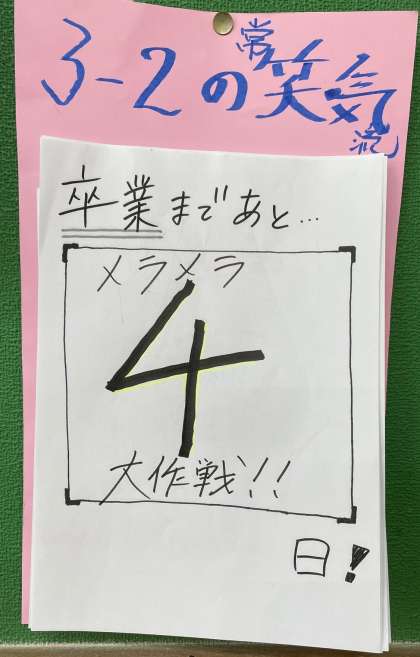 3-2の笑気
常
流
卒業まであと…
メラメラ
4
大作戦!!
日!